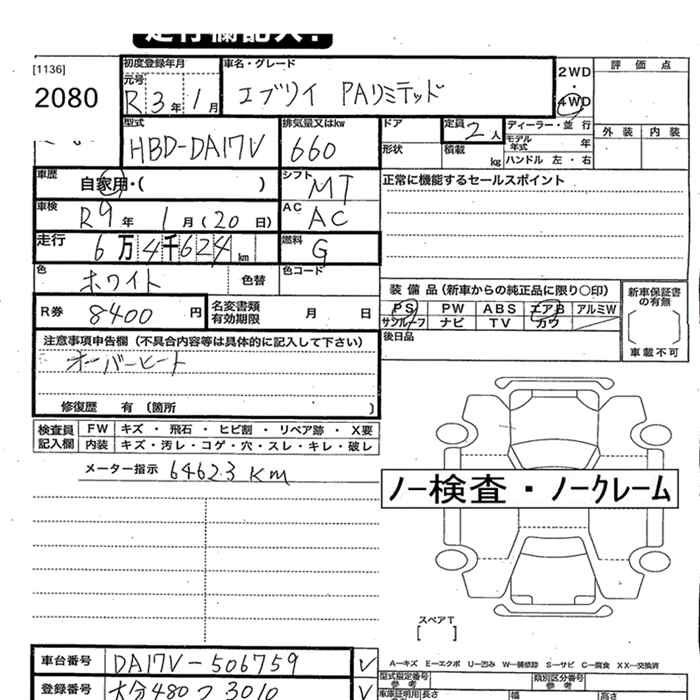 走行欄記入！
[1136]
2080
初度登録年月
元号
R3年1月
車名・グレード
エブリイ PAリミテッド
2WD
・
4WD
評価点
外装 内装
型式
HBD-DA17V
排気量又はkw
660
ドア
形状
定員 2人
積載 kg
ディーラー・並行
モデル年式 年
ハンドル 左・右
車歴
自家用・( )
シフト
MT
正常に機能するセールスポイント
車検
R9年1月(20日)
AC
AC
走行
6万4千624km
燃料
G
色
ホワイト
色替
色コード
装備品(新車からの純正品に限り○印)
PS PW ABS エアB アルミW
サンルーフ ナビ TV カワ
新車保証書の有無
[ ]
車載不可
R券 8400円
名変書類有効期限 月 日
後日品
注意事項申告欄(不具合内容等は具体的に記入して下さい)
オーバーヒート
修復歴 有 〔箇所 〕
検査員記入欄
FW キズ・飛石・ヒビ割・リペア跡・X要
内装 キズ・汚レ・コゲ・穴・スレ・キレ・破レ
メーター指示 64623 KM
ノー検査・ノークレーム
スペアT
[ ]
A…キズ E…エクボ U…凹み W…補修跡 S…サビ C…腐食 XX…交換済
車台番号 DA17V-506759 ✓
登録番号 大分480つ3010 ✓
型式指定番号
参考
類別区分番号
参考
車庫証明用 長さ 幅 高さ